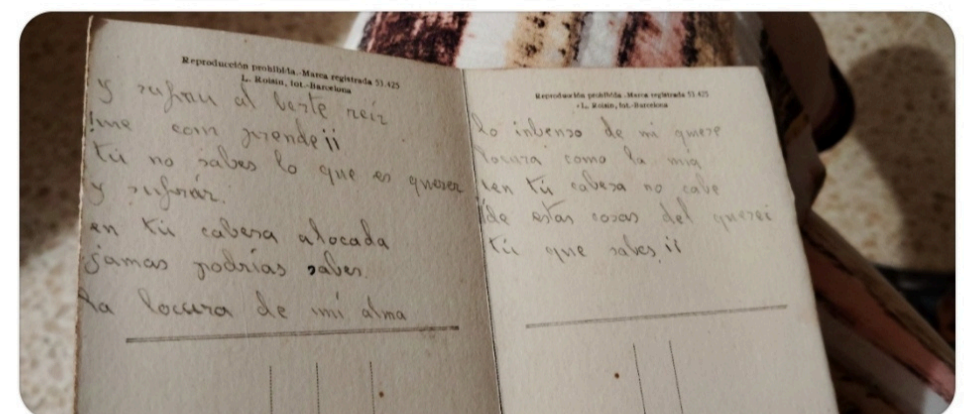 Reproducción prohibida.-Marca registrada 51.425
L. Roisin, fot.-Barcelona
y sufrir al verte reir
!me comprendeii
tú no sabes lo que es querer
y sufrir.
en tú cabesa alocada
jamas podrías saber.
la locura de mi alma
Reproducción prohibida.-Marca registrada 51.425
- L. Roisin, fot.-Barcelona
lo inbenso de mi querer
locura como la mia
en tú cabesa no cabe
de estas cosas del querer
tú que sabes ii